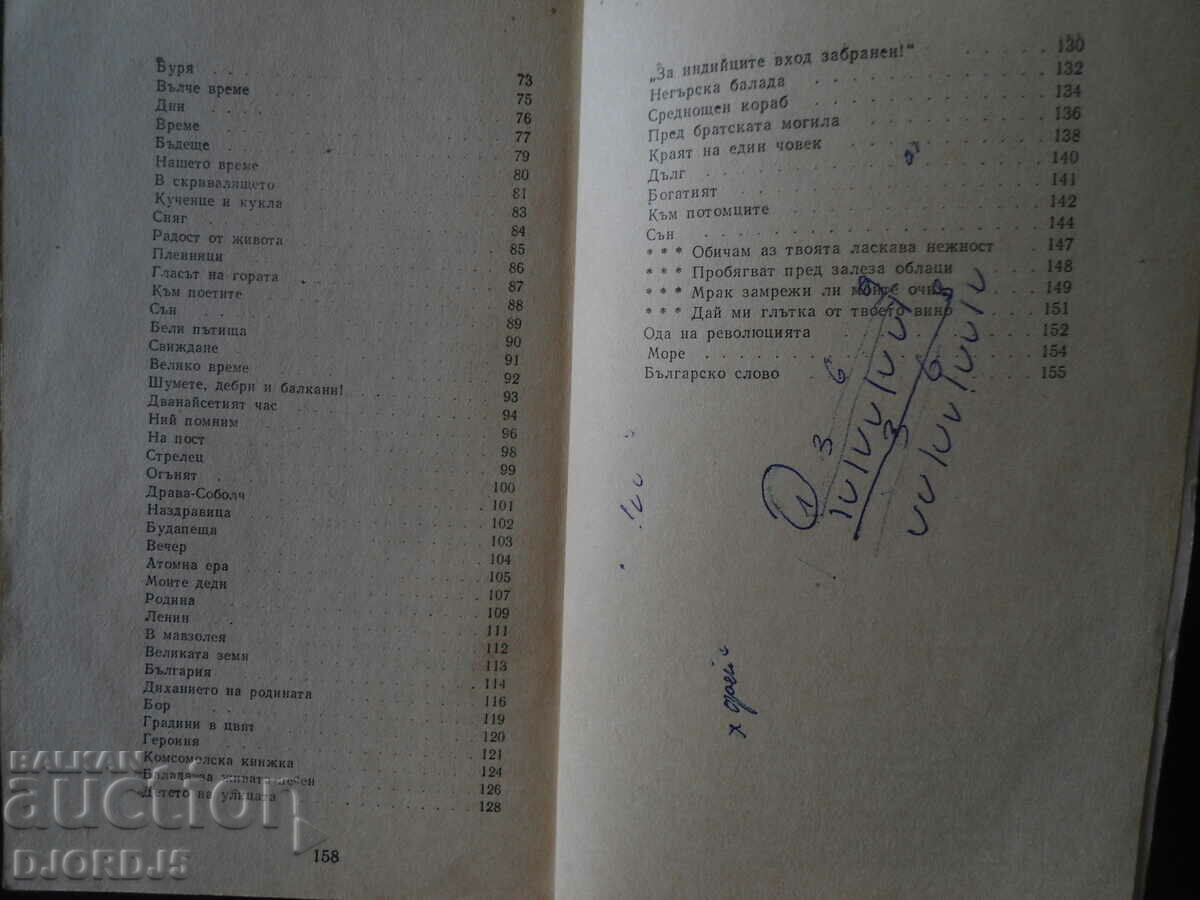 Буря . . . 73
Вълче време . . . 75
Дни . . . 76
Време . . . 77
Бъдеще . . . 79
Нашето време . . . 80
В скривалището . . . 81
Кученце и кукла . . . 83
Сняг . . . 84
Радост от живота . . . 85
Плевници . . . 86
Гласът на гората . . . 87
Към поетите . . . 88
Сън . . . 89
Бели пътища . . . 90
Свиждане . . . 91
Велико време . . . 92
Шумете, дебри и балкани! . . . 93
Дванайсетият час . . . 94
Ний помним . . . 96
На пост . . . 98
Стрелец . . . 99
Огънят . . . 100
Драва-Соболч . . . 101
Наздравица . . . 102
Будапеща . . . 103
Вечер . . . 104
Атомна ера . . . 105
Моите деди . . . 107
Родина . . . 109
Ленин . . . 111
В мавзолея . . . 112
Великата земя . . . 113
България . . . 114
Диханието на родината . . . 116
Бор . . . 119
Градини в цвят . . . 120
Героиня . . . 121
Комсомолска книжка . . . 124
Балада за живата песен . . . 126
Детето на улицата . . . 128
158
„За индийците вход забранен!“ . . . 130
Негърска балада . . . 132
Среднощен кораб . . . 134
Пред братската могила . . . 136
Краят на един човек . . . 138
Дълг . . . 140
Богатият . . . 141
Към потомците . . . 142
Сън . . . 144
* * * Обичам аз твоята ласкава нежност . . . 147
* * * Пробягват пред залеза облаци . . . 148
* * * Мрак замрежи ли моите очи . . . 149
* * * Дай ми глътка от твоето вино . . . 151
Ода на революцията . . . 152
Море . . . 154
Българско слово . . . 155
3 6 9
3 6 8
BALKAN
auction
DJORDJ5